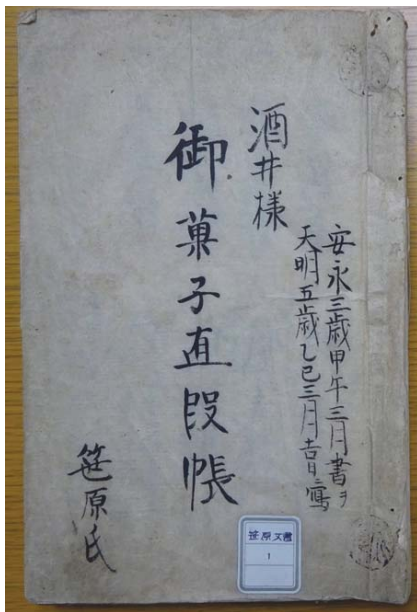 安永三歳甲午三月書ヲ
天明五歳乙巳三月吉日寫
酒井様
御菓子直段帳
笹原氏
笹原文書
1